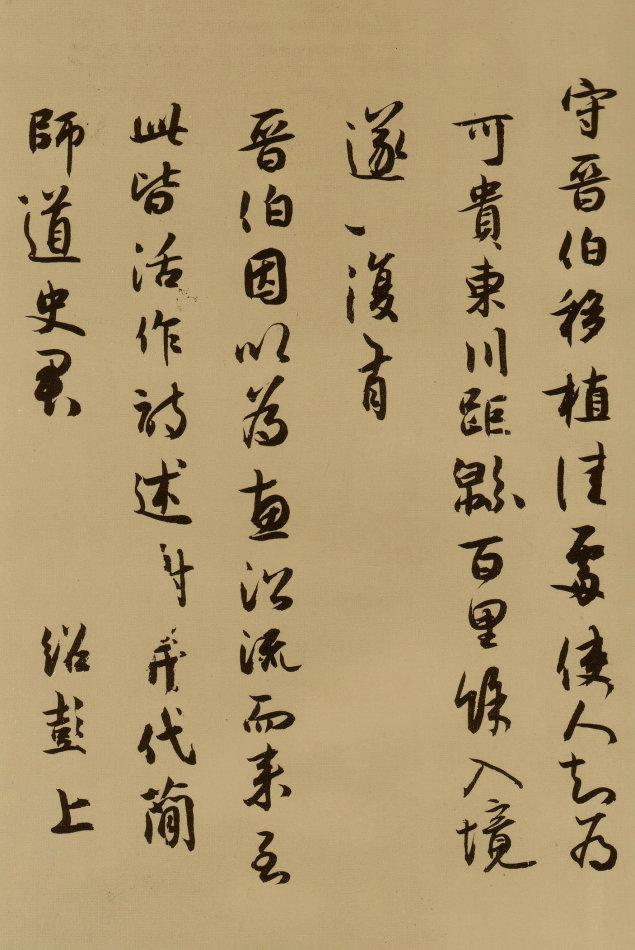 守晉伯移植佳處使人知為
可貴東川距縣百里餘入境
遂復有
晉伯因以為惠沿流而來至
此皆活作詩述代簡
師道史君
紹彭上